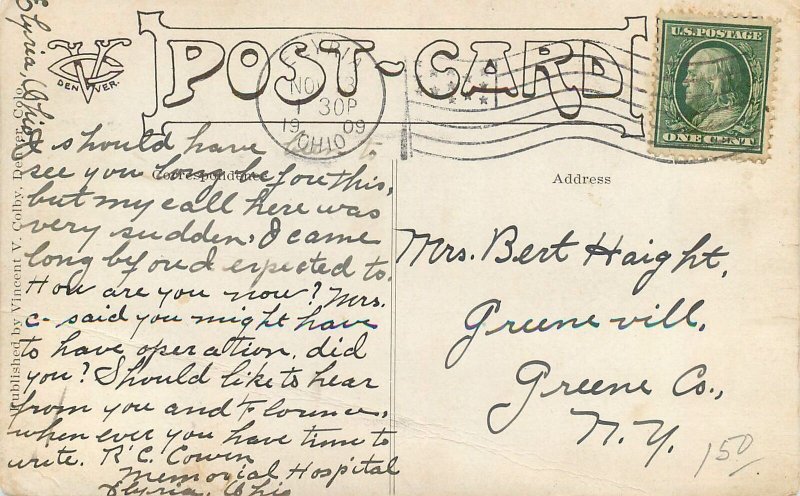 Elyria, Ohio
VC
DENVER.
POST-CARD
ELYRIA
NOV
1 30P
1909
OHIO
U.S. POSTAGE
ONE CENT
Correspondence
Address
Published by Vincent V. Colby, Denver, Colo.
I should have to
see you long before this,
but my call here was
very sudden, I came
long before I expected to.
How are you now? Mrs.
C- said you might have
to have operation, did
you? Should like to hear
from you and Florence,
when ever you have time to
write. R. C. Cowen
Memorial Hospital
Elyria, Ohio
Mrs. Bert Haight,
Greenevill,
Greene Co.,
N.Y.
150